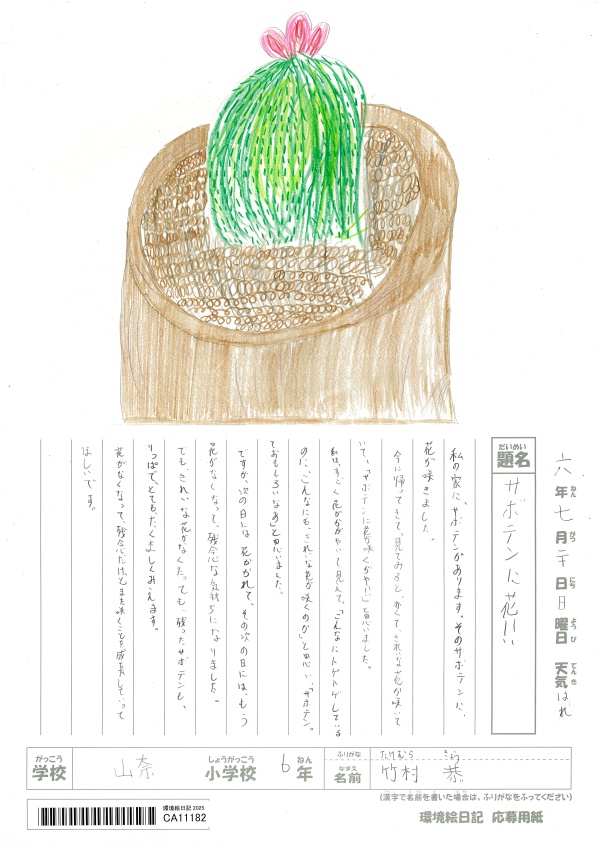 六年七月二十日日曜日 天気はれ
ねん がつ にち ようび てんき
だいめい
題名 サボテンに花!!!
私の家に、サボテンがあります。そのサボテンに、
花が咲きました。
今に帰ってきて、見てみると、赤くて、きれいな花が咲いて
いて、「サボテンに花が咲くがやー」と思いました。
私は、すごく花がかがやいて見えて、「こんなにトゲトゲしている
のに、こんなにも、きれいな花が咲くのか」と思い、「サボテン
ておもしろいなあ」と思いました。
ですが、次の日には、花がかれて、その次の日には、もう
花がなくなって、残念な気持ちになりました。
でも、きれいな花がなくたっても、残ったサボテンも、
りっぱで、とても、たくましくみえます。
花がなくなって、残念だけど、また咲くことを成長していって
ほしいです。
がっこう
学校 山奈
しょうがっこう ねん
小学校 6年
ふりがな たけむら きら
なまえ
名前 竹村 恭
(漢字で名前を書いた場合は、ふりがなをふってください)
環境絵日記 2025
CA11182
環境絵日記 応募用紙